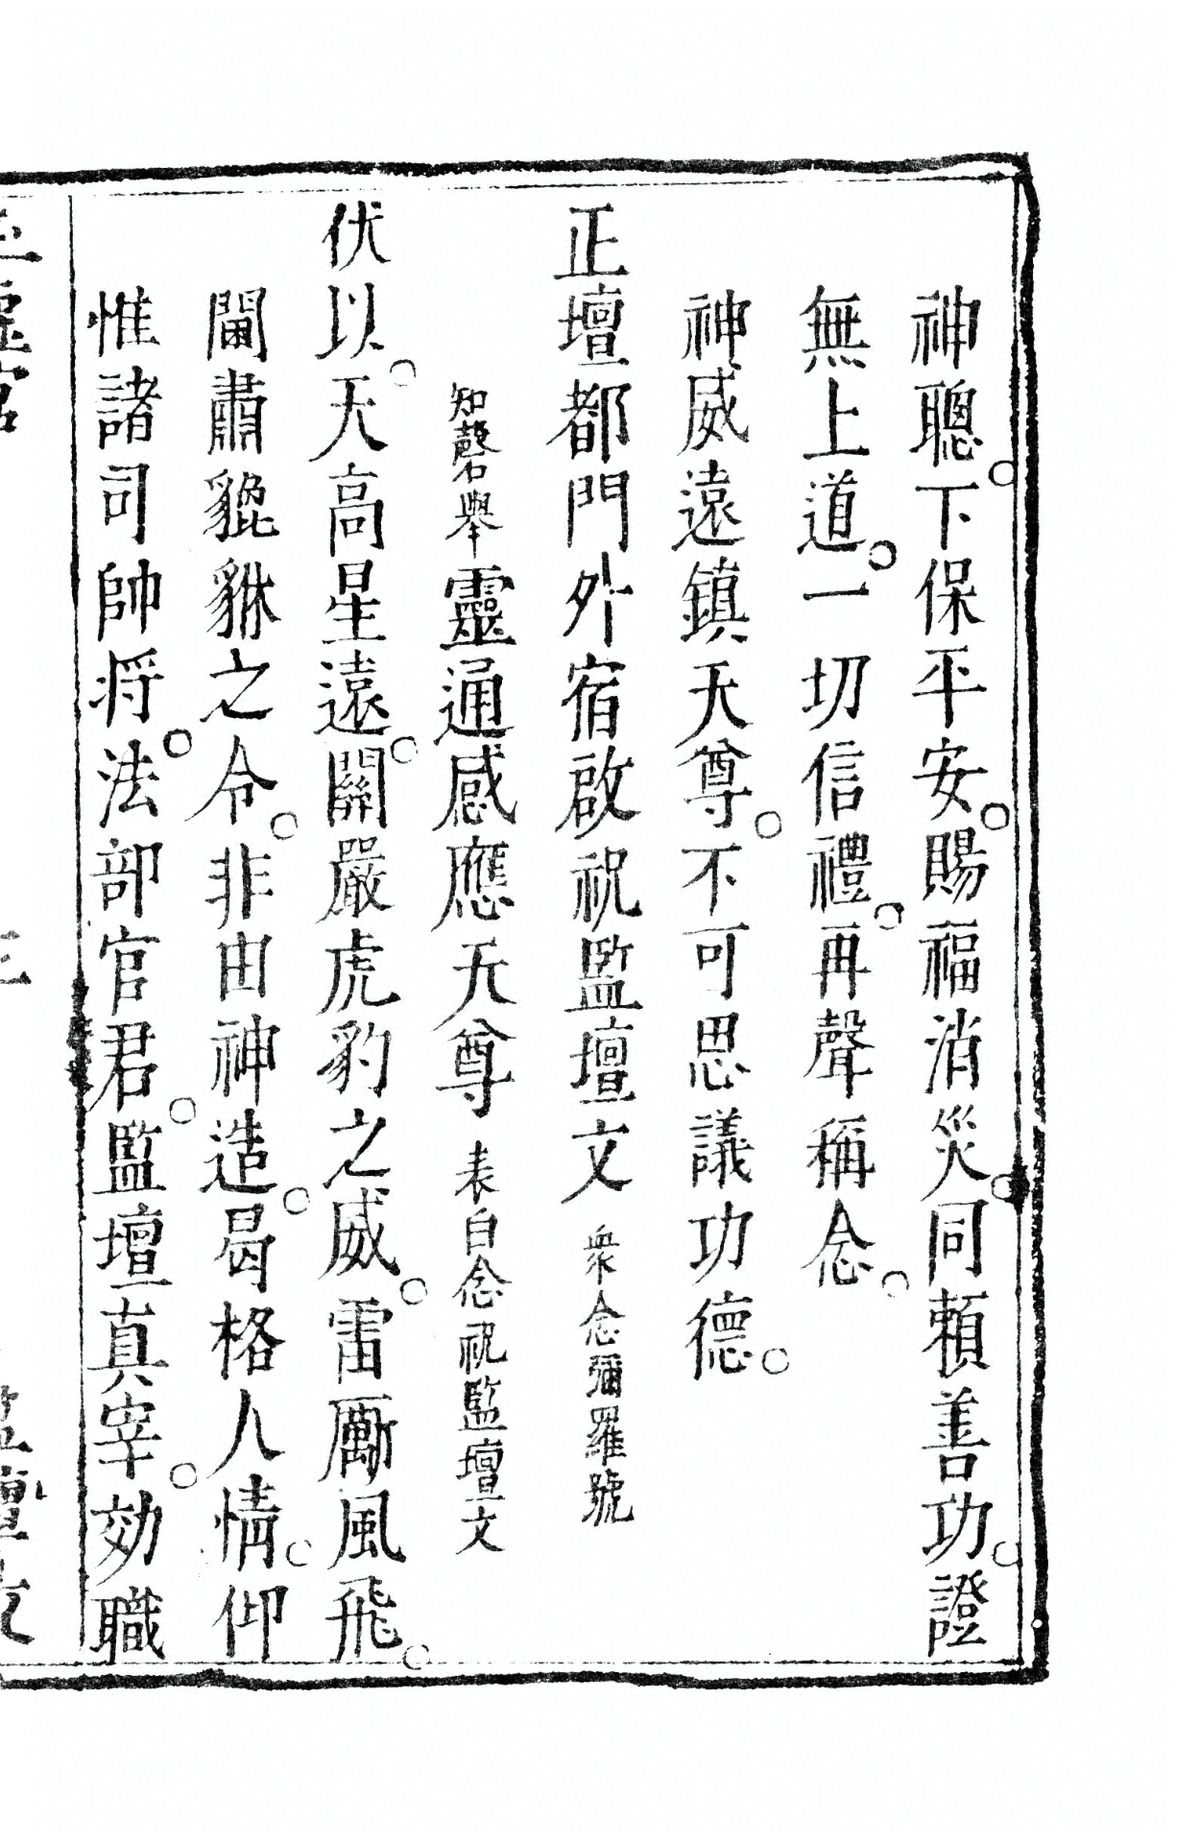 神聰。下保平安。賜福消災。同賴善功。證
無上道。一切信禮。再聲稱念。
神威遠鎮天尊。不可思議功德。
正壇都門外宿啟祝監壇文 衆念彌羅號
知磬舉靈通感應天尊 表白念祝監壇文
伏以。天高星遠。關嚴虎豹之威。雷厲風飛。
閫肅貔貅之令。非由神造。曷格人情。仰
惟諸司帥將。法部官君。監壇真宰。効職